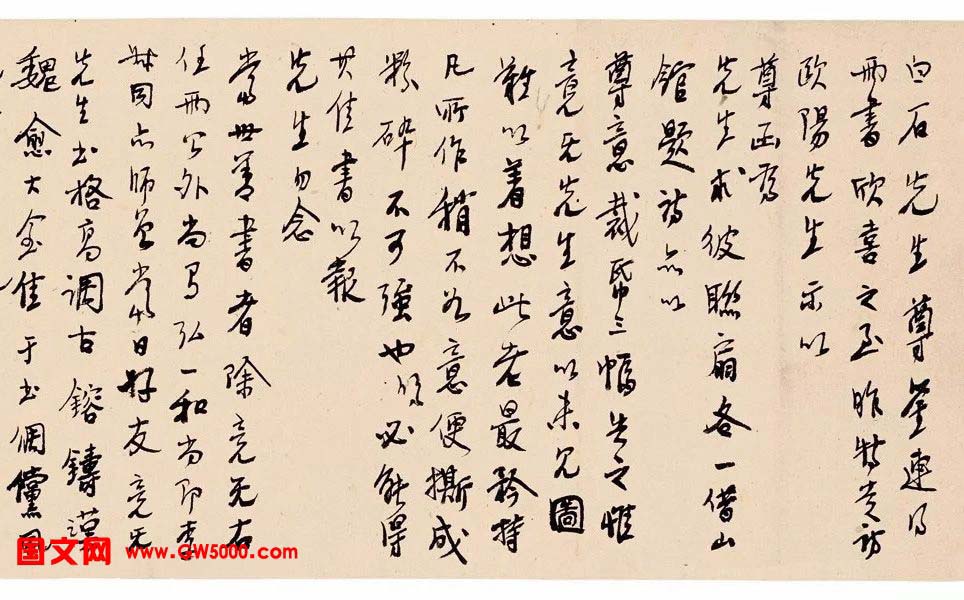 白石先生尊鉴连得
两书欣喜之至昨特走访
欧阳先生示以
尊函为
先生求彼联扇各一借山
馆题诗亦以
尊意裁纸三幅告之惟
竟无先生意以未见图
难以着想此老最矜持
凡所作稍不如意便撕成
粉碎不可强也然必能得
其佳书以报
先生勿念
当世善书者除竟无右
任两公外尚有弘一和尚即李
叔同亦师曾当日好友竟无
先生书格高调古鎔铸汉
魏愈大愈佳于书倜傥
图文网 www.GW5000.com